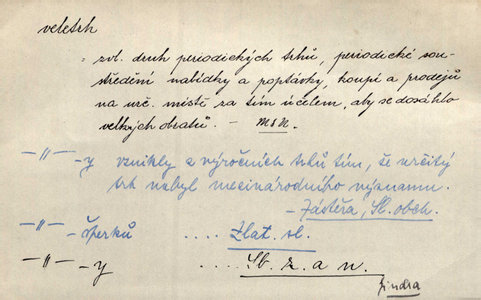 veletrh
= zvl. druh periodických trhů, periodické sou-
středění nabídky a poptávky, koupí a prodejů
na urč. místě za tím účelem, aby se dosáhlo
velkých obratů. – MSN.
–„–y vznikly z výročních trhů tím, že určitý
trh nabyl mezinárodního významu.
– Zástěra, Sl. obch.
–„– šperků .... Zlat. sl.
–„–y .... Sb. z. a n.
Jindra